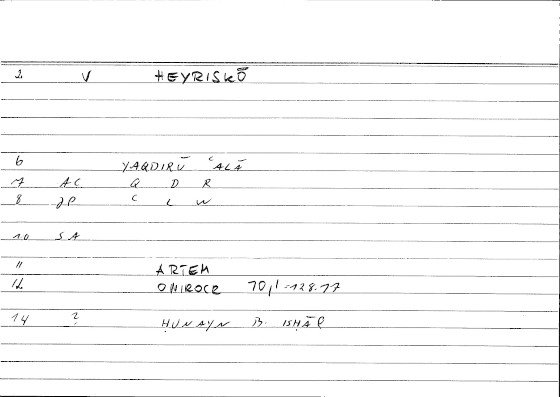 2 V HEYRISKŌ
6 YAQDIRŪ ʿALĀ
7 AC Q D R
8 JP ʿ L W
10 SA
11 ARTEM
12 ONIROCR 70,1-128.17
14 ? ḤUNAYN B. ISḤĀQ